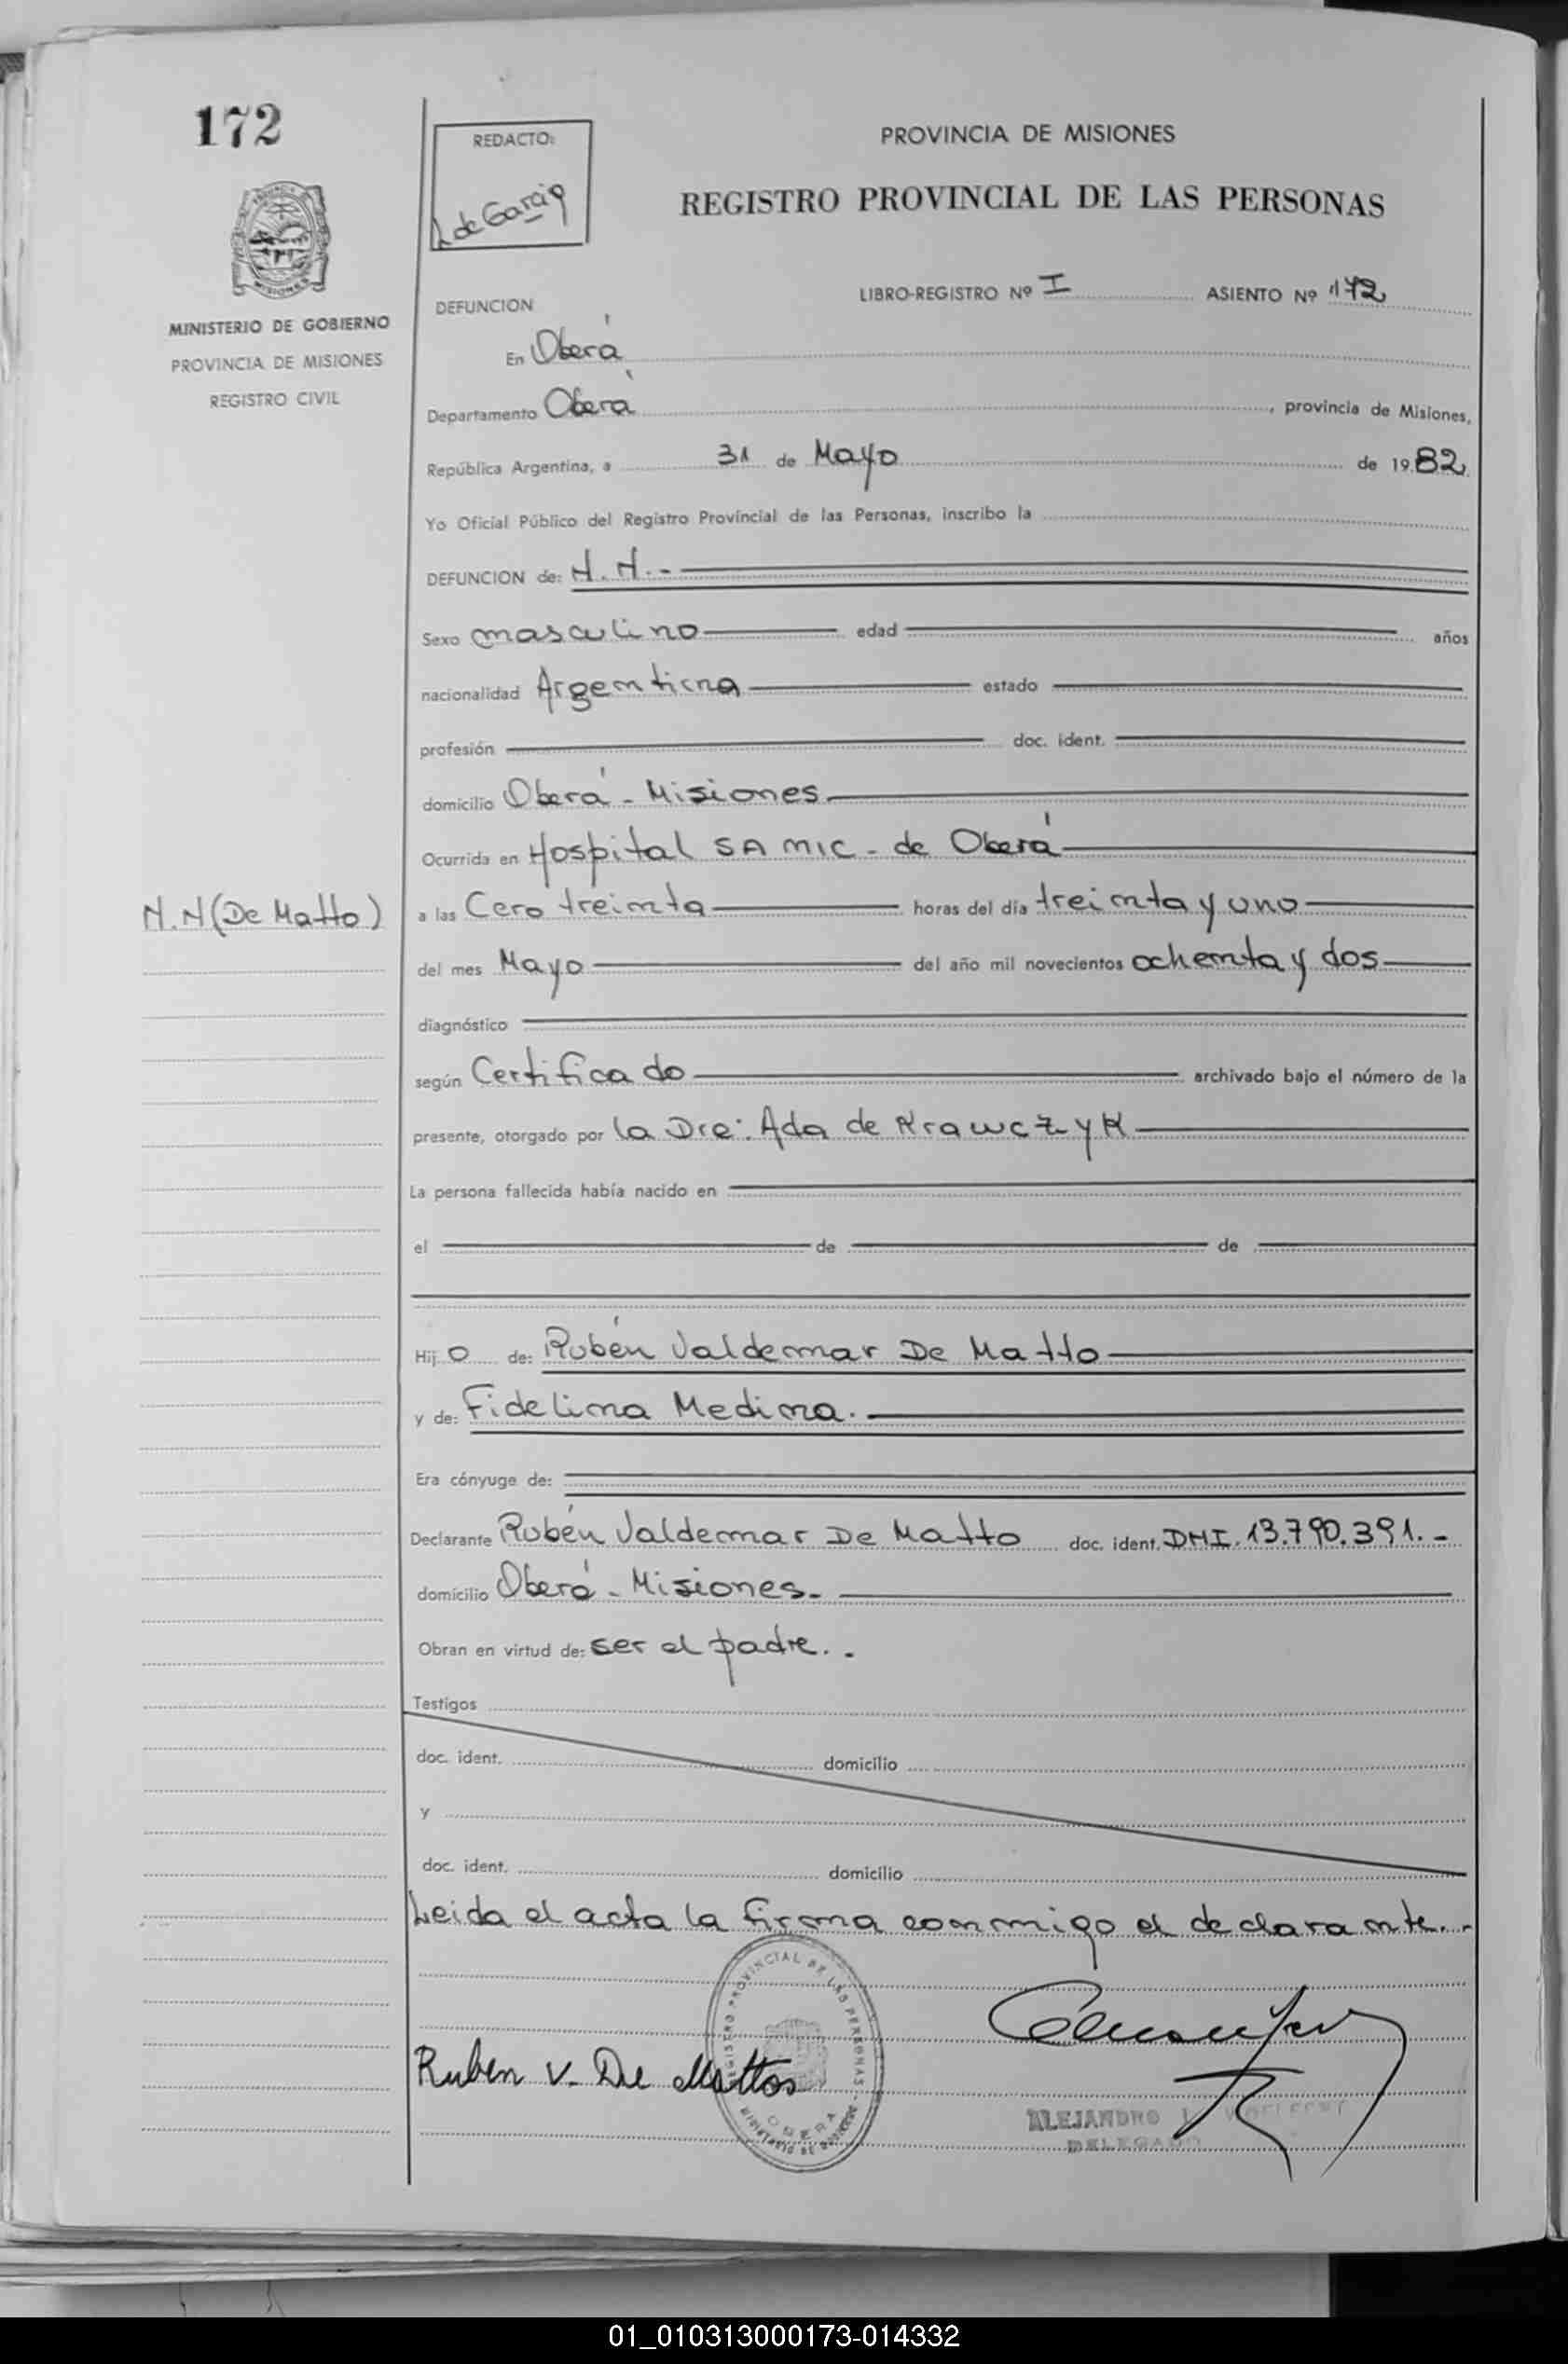 172
REDACTO:
L de Garcia
PROVINCIA DE MISIONES
REGISTRO PROVINCIAL DE LAS PERSONAS
MISIONES
MINISTERIO DE GOBIERNO
PROVINCIA DE MISIONES
REGISTRO CIVIL
LIBRO-REGISTRO Nº I ASIENTO Nº 172
DEFUNCION
En Oberá
Departamento Oberá, provincia de Misiones,
República Argentina, a 31 de Mayo de 1982
Yo Oficial Público del Registro Provincial de las Personas, inscribo la
DEFUNCION de: N.N.-
Sexo masculino edad años
nacionalidad Argentina estado
profesión doc. ident.
domicilio Oberá - Misiones
Ocurrida en Hospital SAMIC - de Oberá
N.N (De Matto)
a las Cero treinta horas del día treinta y uno
del mes Mayo del año mil novecientos ochenta y dos
diagnóstico
según Certificado archivado bajo el número de la
presente, otorgado por la Dra: Ada de Krawczyk
La persona fallecida había nacido en
el de de
Hijo de: Rubén Valdemar De Matto
y de: Fidelina Medina.
Era cónyuge de:
Declarante Rubén Valdemar De Matto doc. ident. DNI. 13.790.391.-
domicilio Oberá - Misiones.
Obran en virtud de: ser el padre..
Testigos
doc. ident. domicilio
y
doc. ident. domicilio
Leida el acta la firma conmigo el declarante..-
REGISTRO PROVINCIAL DE LAS PERSONAS
MINISTERIO DE GOBIERNO
OBERA
Ruben V. De Mattos
ALEJANDRO
DELEGADO
01_010313000173-014332